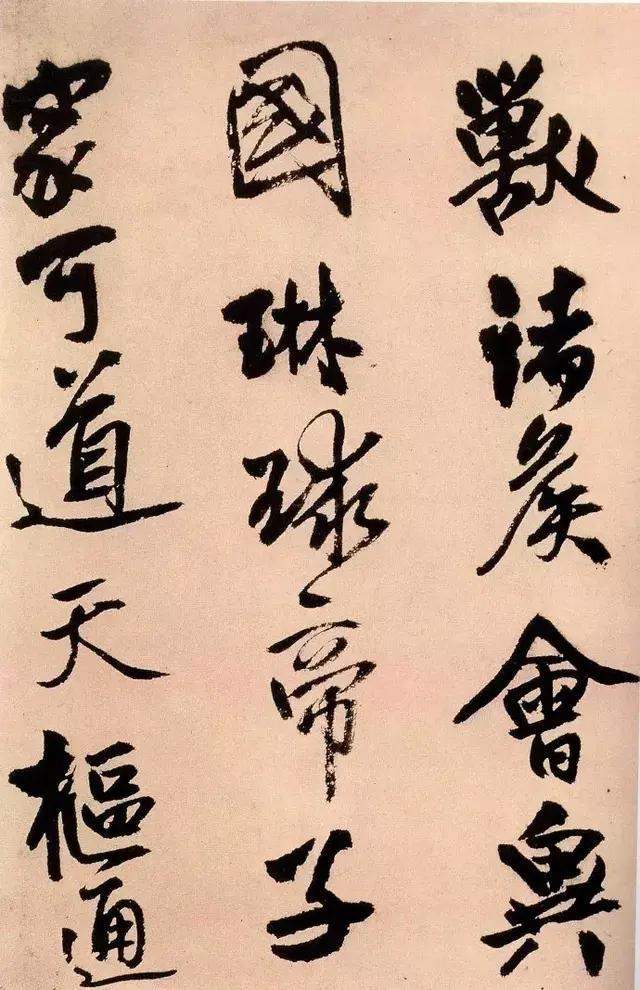 獸諸侯會興
國琳球帝子
家可道天
樞通